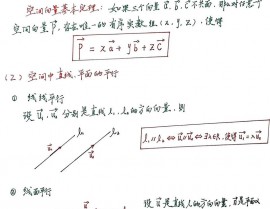 空间向量基本定理：如果三个向量 a⃗, b⃗, c⃗ 不共面，那么对任意一个
空间向量 p⃗，存在唯一的有序实数组 (x, y, z)，使得
p⃗ = xa⃗ + yb⃗ + zc⃗
(2) 空间中直线、平面的平行
① 线线平行
设 u₁⃗, u₂⃗ 分别是直线 l₁, l₂ 的方向向量，则
l₁ l₂
l₁∥l₂ ⇔ u₁⃗∥u₂⃗ ⇔ ∃λ∈R, 使得 u₁⃗=λu₂⃗
u₁⃗ u₂⃗
② 线面平行
设 u⃗ 是直线 l 的方向向量，